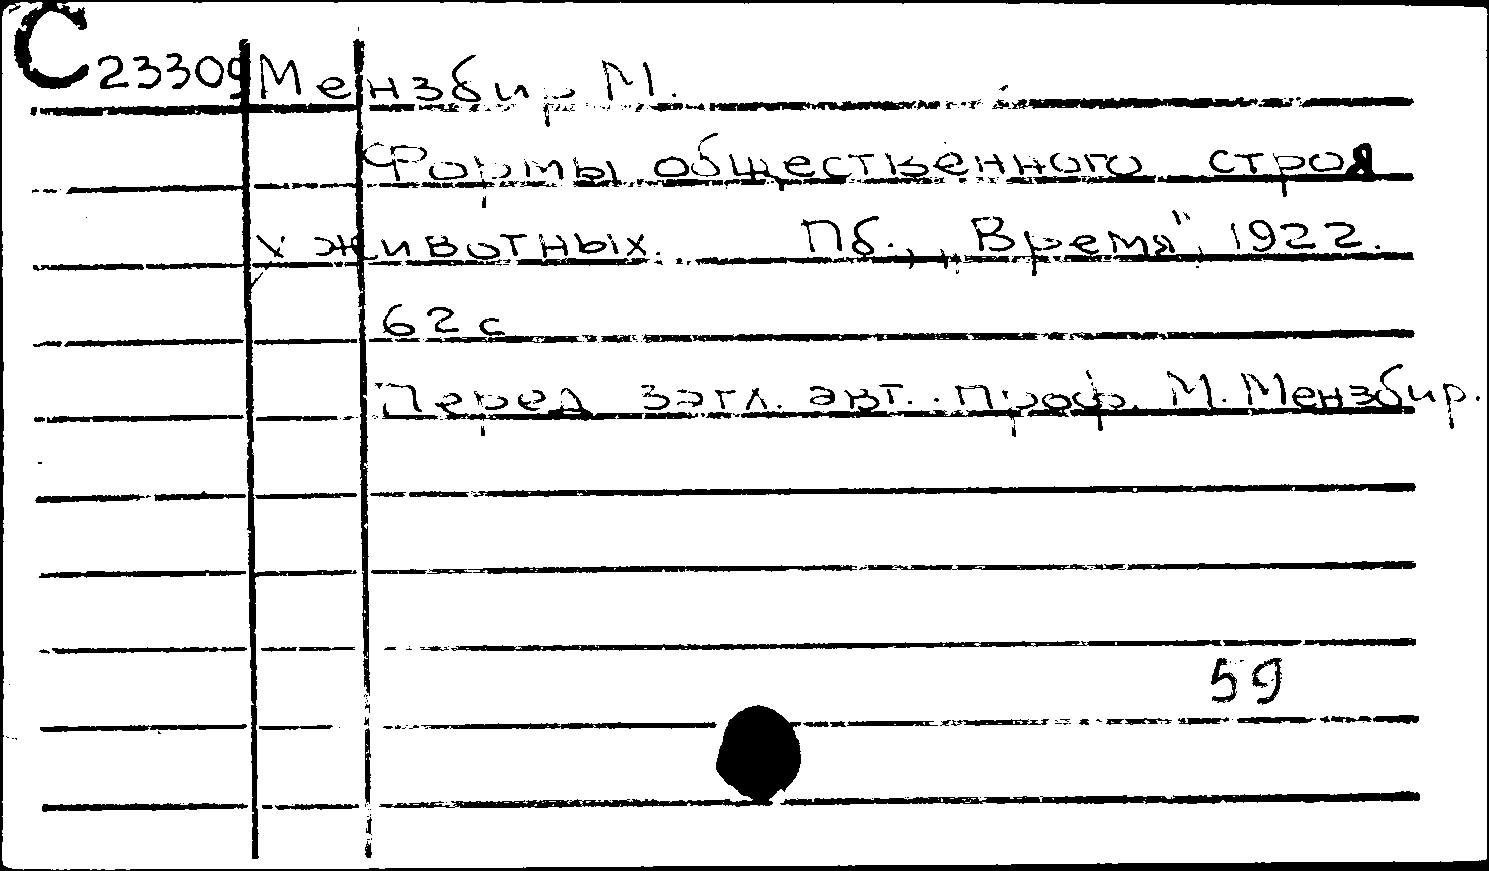 С 23309 Мензбир М.
Формы общественного строя
у животных. Пб., „Время", 1922.
62 с
Перед загл. авт.: проф. М. Мензбир.
59